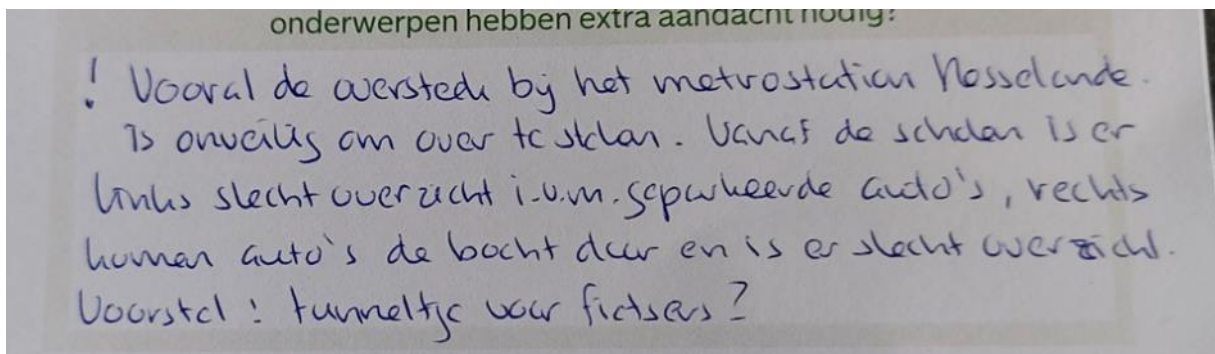 onderwerpen hebben extra aandacht nodig?
! Vooral de oversteek bij het metrostation Nesselande.
Is onveilig om over te steken. Vanaf de scholen is er
links slecht overzicht i.v.m. geparkeerde auto's, rechts
komen auto's de bocht door en is er slecht overzicht.
Voorstel: tunneltje voor fietsers?